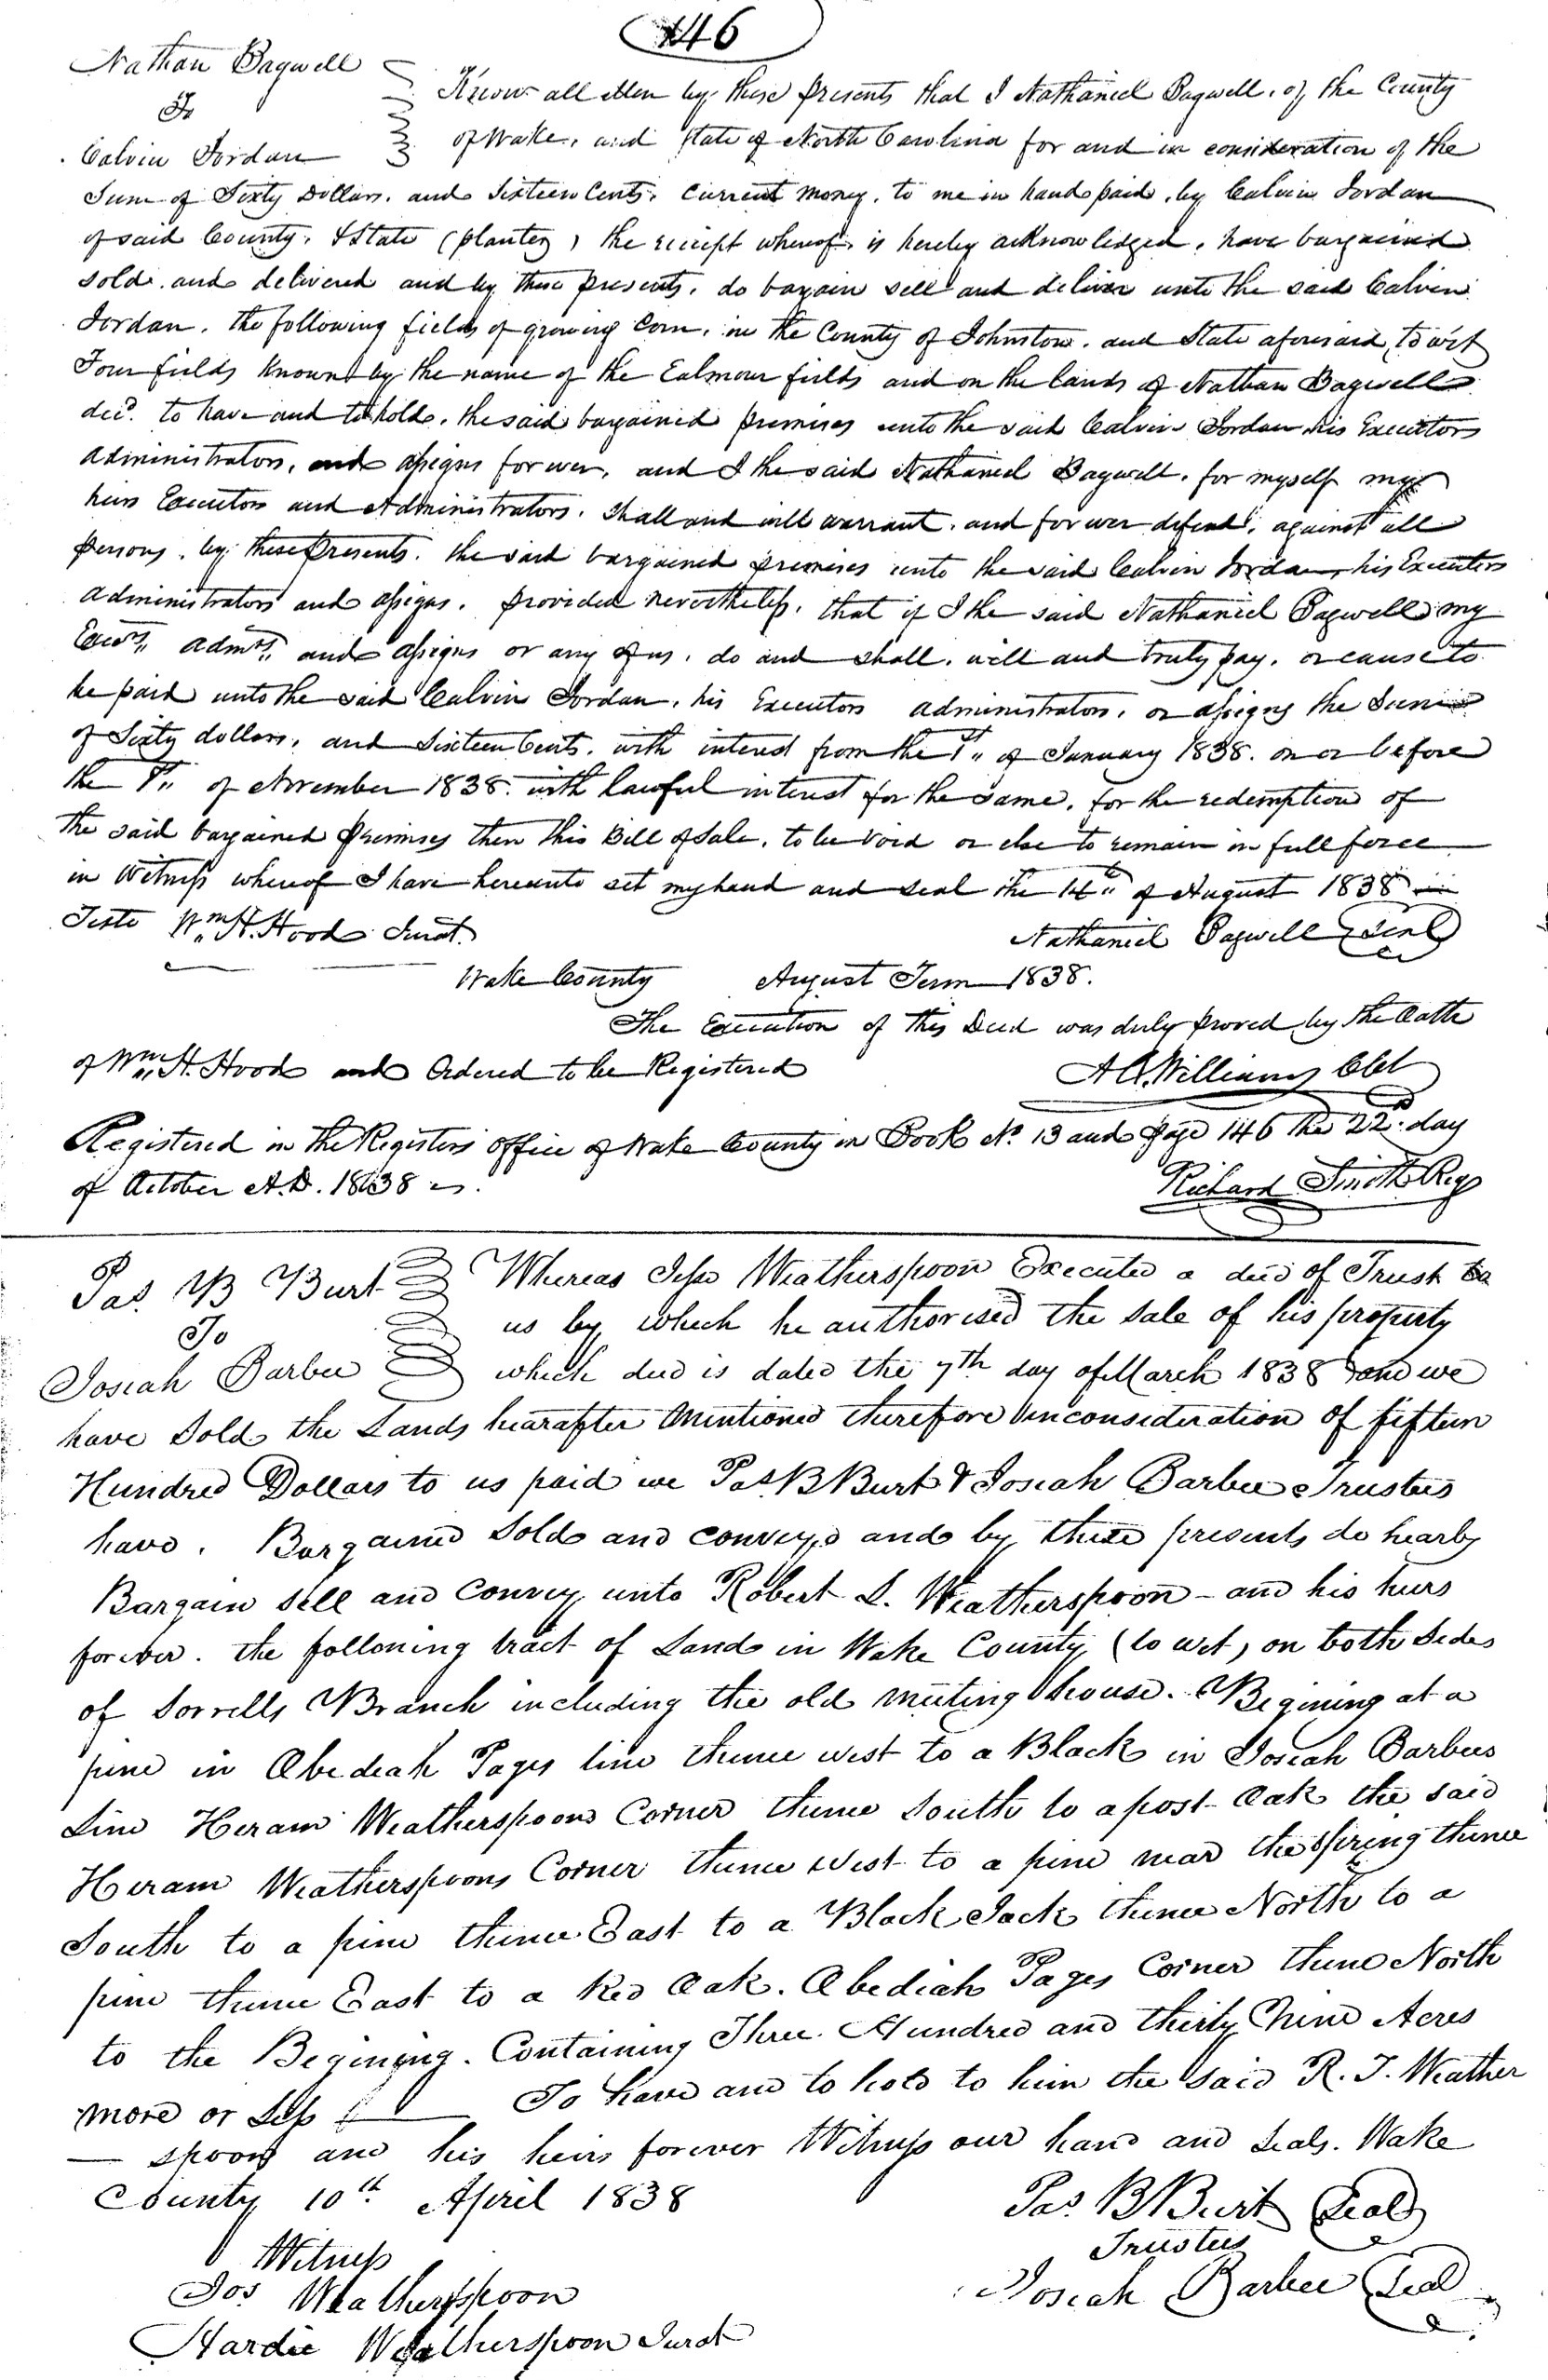 146
Nathan Bagwell
To
Calvin Jordan
Know all Men by these presents that I Nathaniel Bagwell, of the County
of Wake, and State of North Carolina for and in consideration of the
Sum of Sixty Dollars, and Sixteen Cents, Current Money, to me in hand paid, by Calvin Jordan
of said County, & State (planter) the receipt whereof, is hereby acknowledged, have bargained
sold, and delivered and by these presents, do bargain sell and deliver unto the said Calvin
Jordan, the following fields of growing Corn, in the County of Johnston, and State aforesaid, to wit
Four fields known by the name of the fields and on the lands of Nathan Bagwell
decd. to have and to hold, the said bargained premises unto the said Calvin Jordan his Executors
administrators, and assigns forever, and I the said Nathaniel Bagwell, for myself my
heirs Executors and Administrators, shall and will warrant, and forever defend, against all
persons, by these presents, the said bargained premises unto the said Calvin Jordan, his Executors
administrators and assigns, provided nevertheless, that if I the said Nathaniel Bagwell my
Execrs, admrs, and assigns or any of us, do and shall, well and truly pay, or cause to
be paid unto the said Calvin Jordan, his Executors administrators, or assigns the Sum
of Sixty dollars, and Sixteen Cents, with interest from the 1st of January 1838. on or before
the 1st of November 1838. with lawful interest for the same, for the redemption of
the said bargained premises then this Bill of Sale, to be void or else to remain in full force
in Witness whereof I have hereunto set my hand and seal the 14th of August 1838
Teste Wm. H. Hood Jurat.
Nathaniel Bagwell Seal
Wake County August Term 1838.
The Execution of this Deed was duly proved by the Oath
of Wm. H. Hood and Ordered to be Registered
A Williams Clk
Registered in the Registers office of Wake County in Book No. 13 and page 146 the 22d. day
of October A.D. 1838
Richard Smith Reg
Jas. B Burt
To
Josiah Barbee
Whereas Jesse Weatherspoon Executed a deed of Trust to
us by which he authorised the sale of his property
which deed is dated the 7th day of March 1838 and we
have Sold the Lands hearafter Mintioned therefore in consideration of fifteen
Hundred Dollars to us paid we Jas. B Burt & Josiah Barbee Trustees
have. Bargained Sold and conveyed and by these presents do hearby
Bargain sell and Convey unto Robert L. Weatherspoon - and his heirs
forever. the following tract of Land in Wake County (to wit) on both sides
of Sorrells Branch including the old meeting house. Begining at a
pine in Obediah Pages line thence west to a Black in Josiah Barbees
Line Heram Weatherspoons Corner thence South to a post Oak the said
Heram Weatherspoons Corner thence West to a pine near the spring thence
South to a pine thence East to a Black Jack thence North to a
pine thence East to a Red Oak. Obediah Pages Corner thence North
to the Begining. Containing Three Hundred and thirty Nine Acres
more or Less To have and to hold to him the said R. J. Weather
spoon and his heirs forever Witness our hand and seals. Wake
County 10th. April 1838
Jas. B Burt Seal
Trustees
Witness
Josiah Barbee Seal
Jos Weatherspoon
Hardie Weatherspoon Jurat